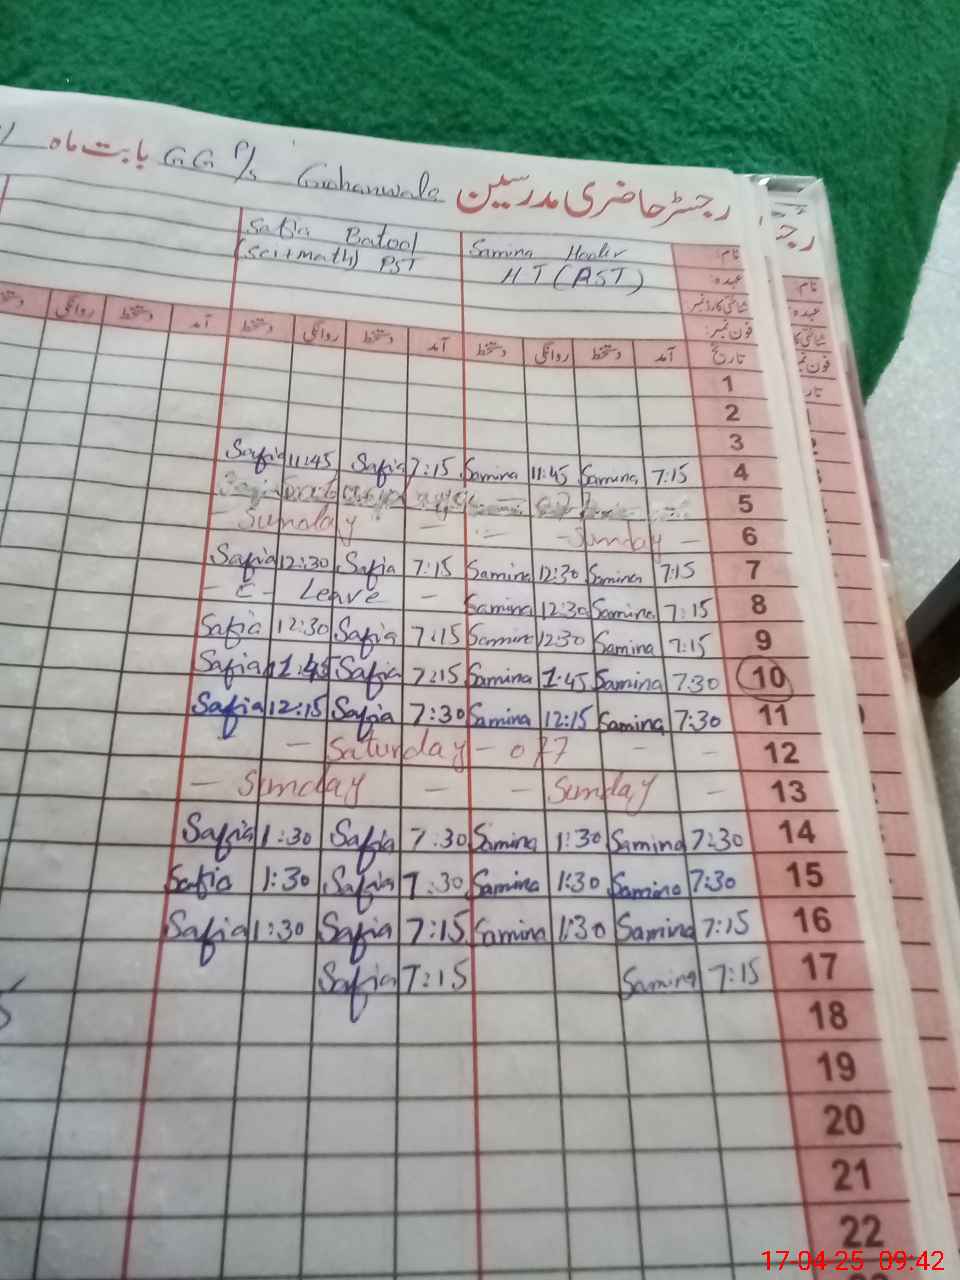 رجسٹر حاضری مدرسین GG P/S Gahanwala بابت ماہ
نام: Samina Safia Batool
عہدہ: HT (PST) (Sci+math) PST
شناختی کارڈ نمبر:
فون نمبر:
تاریخ آمد دستخط روانگی دستخط آمد دستخط روانگی دستخط آمد دستخط روانگی
1
2
3
4 7:15 Samina 11:45 Samina 7:15 Safia 11:45 Safia
5
6 - Sunday - - Sunday -
7 7:15 Samina 12:30 Samina 7:15 Safia 12:30 Safia
8 7:15 Samina 12:30 Samina - C - Leave -
9 7:15 Samina 12:30 Samina 7:15 Safia 12:30 Safia
10 7:30 Samina 1:45 Samina 7:15 Safia 1:45 Safia
11 7:30 Samina 12:15 Samina 7:30 Safia 12:15 Safia
12 - Saturday - off - -
13 - Sunday - - Sunday -
14 7:30 Samina 1:30 Samina 7:30 Safia 1:30 Safia
15 7:30 Samina 1:30 Samina 7:30 Safia 1:30 Safia
16 7:15 Samina 1:30 Samina 7:15 Safia 1:30 Safia
17 7:15 Samina 7:15 Safia
18
19
20
21
22
17-04-25 09:42